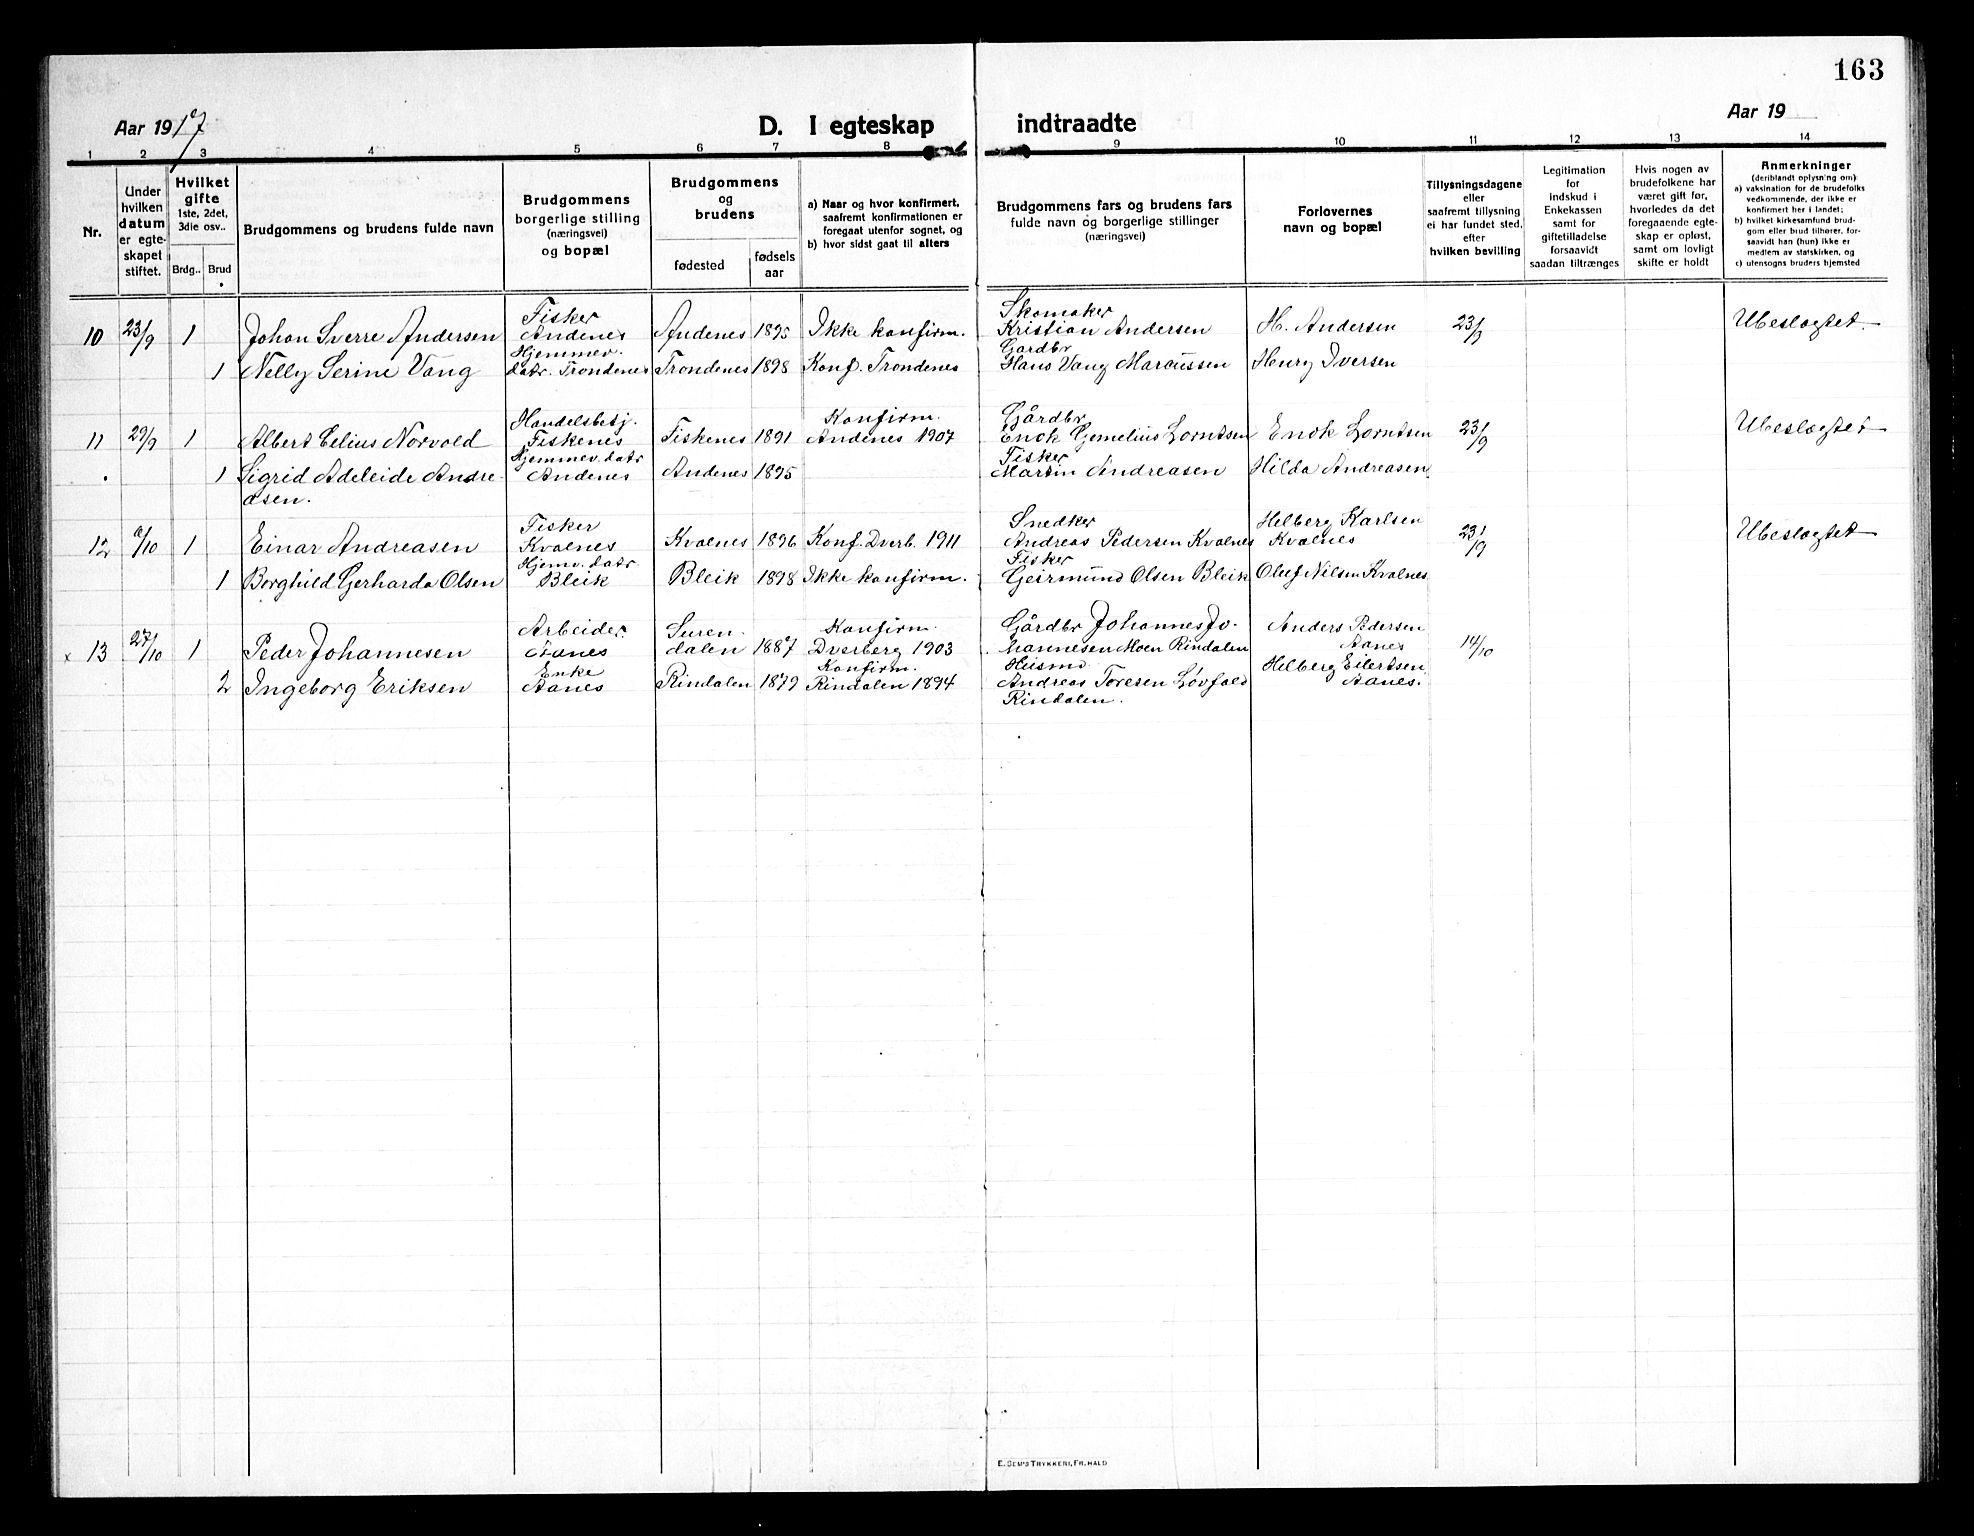 163
Aar 1917
D. I egteskap indtraadte
Aar 19
1 2 3 4 5 6 7 8 9 10 11 12 13 14
Nr.
Under
hvilken
datum
er egte-
skapet
stiftet.
Hvilket
gifte
1ste, 2det,
3die osv..
Brdg.. Brud
Brudgommens og brudens fulde navn
Brudgommens
borgerlige stilling
(næringsvei)
og bopæl
Brudgommens
og
brudens
fødested
fødsels
aar
a) Naar og hvor konfirmert,
saafremt konfirmationen er
foregaat utenfor sognet, og
b) hvor sidst gaat til alters
Brudgommens fars og brudens fars
fulde navn og borgerlige stillinger
(næringsvei)
Forlovernes
navn og bopæl
Tillysningsdagene
eller
saafremt tillysning
ei har fundet sted,
efter
hvilken bevilling
Legitimation
for
Indskud i
Enkekassen
samt for
giftetilladelse
forsaavidt
saadan tiltrænges
Hvis nogen av
brudefolkene har
været gift før,
hvorledes da det
foregaaende egte-
skap er opløst,
samt om lovligt
skifte er holdt
Anmerkninger
(deriblandt oplysning om)
a) vaksination for de brudefolks
vedkommende, der ikke er
konfirmert her i landet;
b) hvilket kirkesamfund brud-
gom eller brud tilhører, for-
saavidt han (hun) ikke er
medlem av statskirken, og
c) utensogns bruders hjemsted
10 23/9 1 Johan Sverre Andersen
Fisker
Andenes
Andenes 1895 Ikke konfirm.
Skomaker
Kristian Andersen
H. Andersen 23/9 Ubeslogtet
1 Nelly Serine Vang
Hjemmev.
datr. Trondenes
Trondenes 1898 Konf. Trondenes
Gardbr
Hans Vang Marcussen
Henry Iversen
11 29/9 1 Albert Celius Norvold
Handelsbetj.
Fiskenes
Fiskenes 1891
Konfirm.
Andenes 1907
Gårdbr
Enok Gemelius Lorntsen
Enok Lorntsen 23/9 Ubeslægtet
1 Sigrid Adeleide Andre-
asen.
Hjemmev. datr
Andenes
Andenes 1895
Fisker
Martin Andreasen
Hilda Andreasen
12 /10 1 Einar Andreasen
Fisker
Kvalnes
Kvalnes 1896 Konf. Dverb. 1911
Snedker
Andreas Pedersen Kvalnes
Helberg Karlsen
Kvalnes
23/9 Ubeslogtet
1 Borghild Gerharda Olsen
Hjemv. datr
Bleik
Bleik 1898 Ikke konfirm.
Fisker
Geirmund Olsen Bleik
Oluf Nilsen Kvalnes
x 13 27/10 1 Peder Johannesen
Arbeider
Aanes
Suren-
dalen 1887
Konfirm.
Dverberg 1903
Gårdbr Johannes Jo-
hannesen Moen Rindalen
Anders Pedersen
Aanes
14/10
2 Ingeborg Eriksen
Enke
Aanes
Rindalen 1879
Konfirm.
Rindalen 1894
Husmd
Andreas Toresen Løvfald
Rindalen.
Helberg Eilertsen
Aanes.
E. SEM'S TRYKKERI, FR.HALD